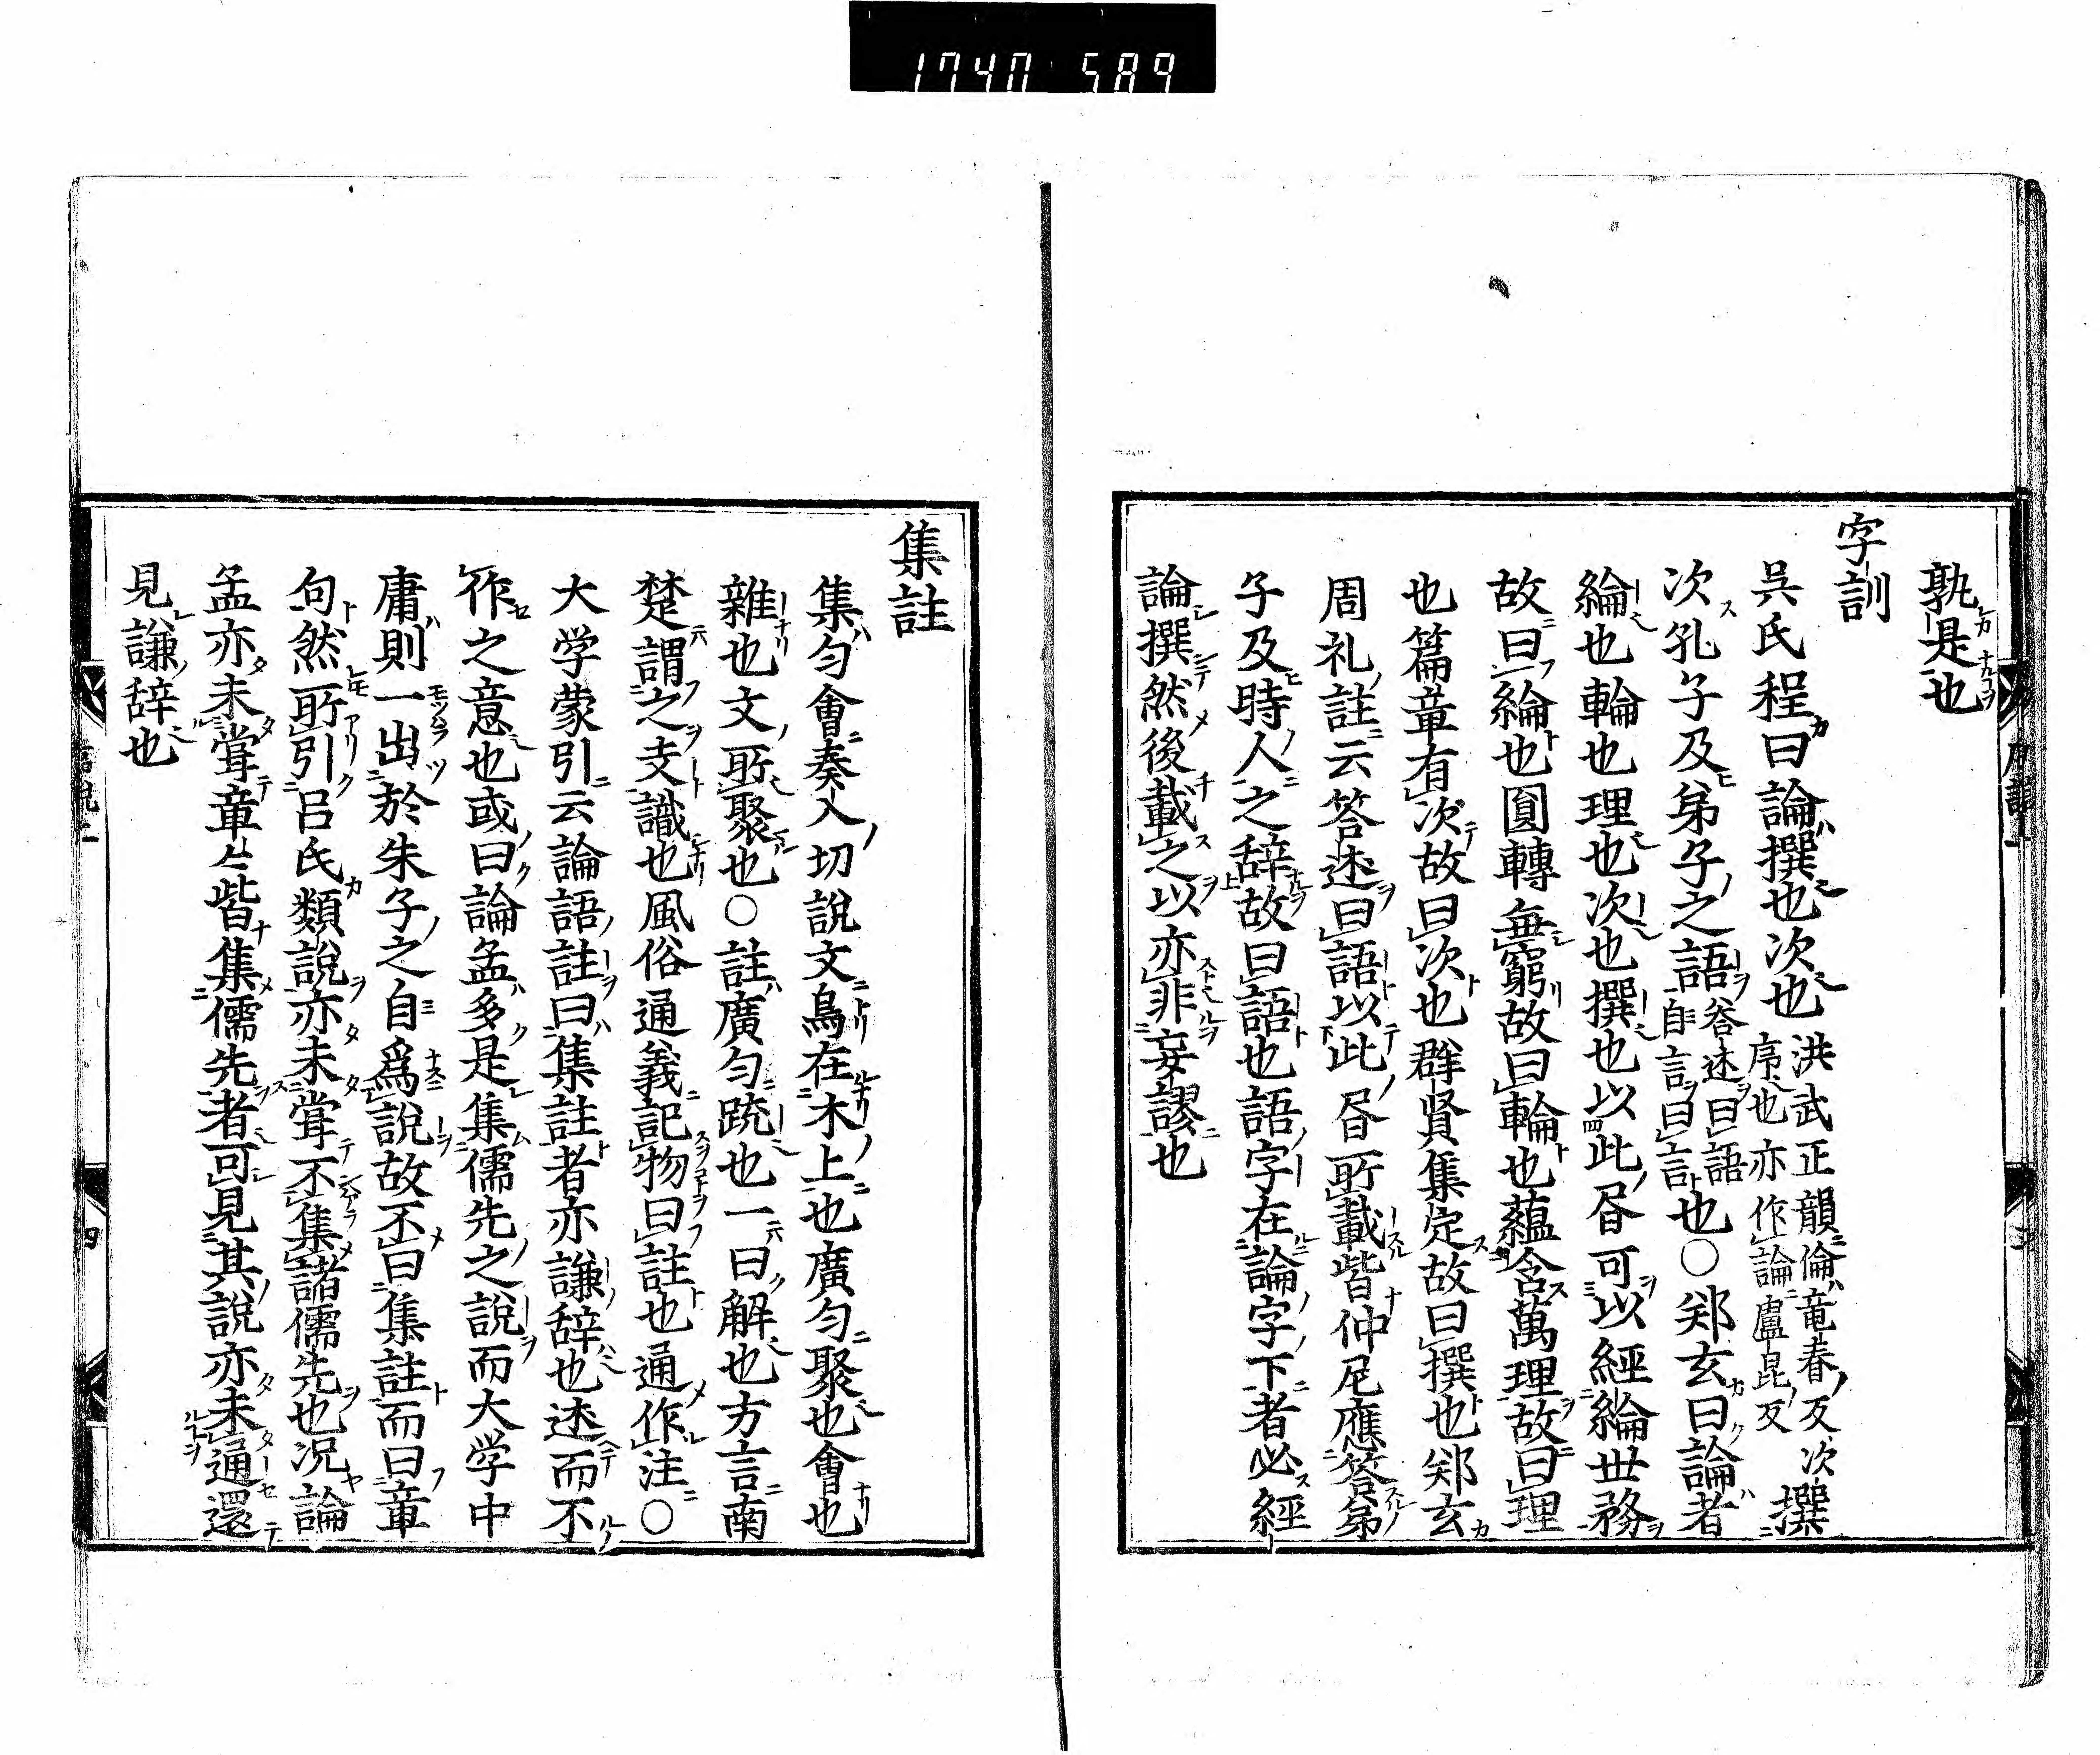 1740 589
孰是也
字訓
吳氏程曰論撰也次也洪武正韻倫竜春反次序也亦作論盧昆反撰
次孔子及弟子之語答述曰語自言曰言也○郑玄曰論者
綸也輪也理也次也撰也以此𪾢可以經綸世務
故曰綸也圓轉無窮故曰輪也蘊含萬理故曰理
也篇章有次故曰次也群賢集定故曰撰也郑玄
周礼註云答述曰語以此𪾢所載皆仲尼應答弟
子及時人之辞故曰語也語字在論字下者必經
論撰然後載之以亦非妄謬也
集註
集匀會奏入切說文鳥在木上也廣匀聚也會也
雜也文所聚也○註廣匀䟽也一曰解也方言南
楚謂之支註識也風俗通義記物曰註也通作注○
大学蒙引云論語註曰集註者亦謙辞也述而不
作之意也或曰論孟多是集儒先之說而大学中
庸則一出於朱子之自爲說故不曰集註而曰章
句然所引呂氏類說亦未甞不集諸儒先也况論
孟亦未甞章々皆集儒先者可見其說亦未通還
見謙辞也
四